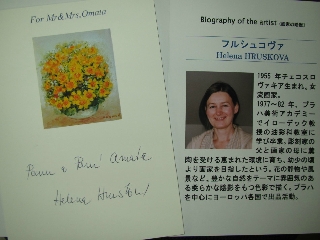 For Mr & Mrs, Omata
Helena Hruskova
Biography of the artist (画家の略歴)
フルシュコヴァ
Helena HRUSKOVA
1955 年チェコスロ
ヴァキア生まれ。女
流画家。
1977〜82 年、プラ
ハ美術アカデミー
でイローデック教
授の油彩科教室に
学び卒業。彫刻家
の父と画家の母に薫
陶を受ける恵まれた環境に育ち、幼少の頃
より画家を目指したという。花の静物や風
景など、豊かな自然をテーマに雰囲気のあ
る柔らかな油彩をもつ色彩で描く。プラハ
を中心にヨーロッパ各国で出品活動。